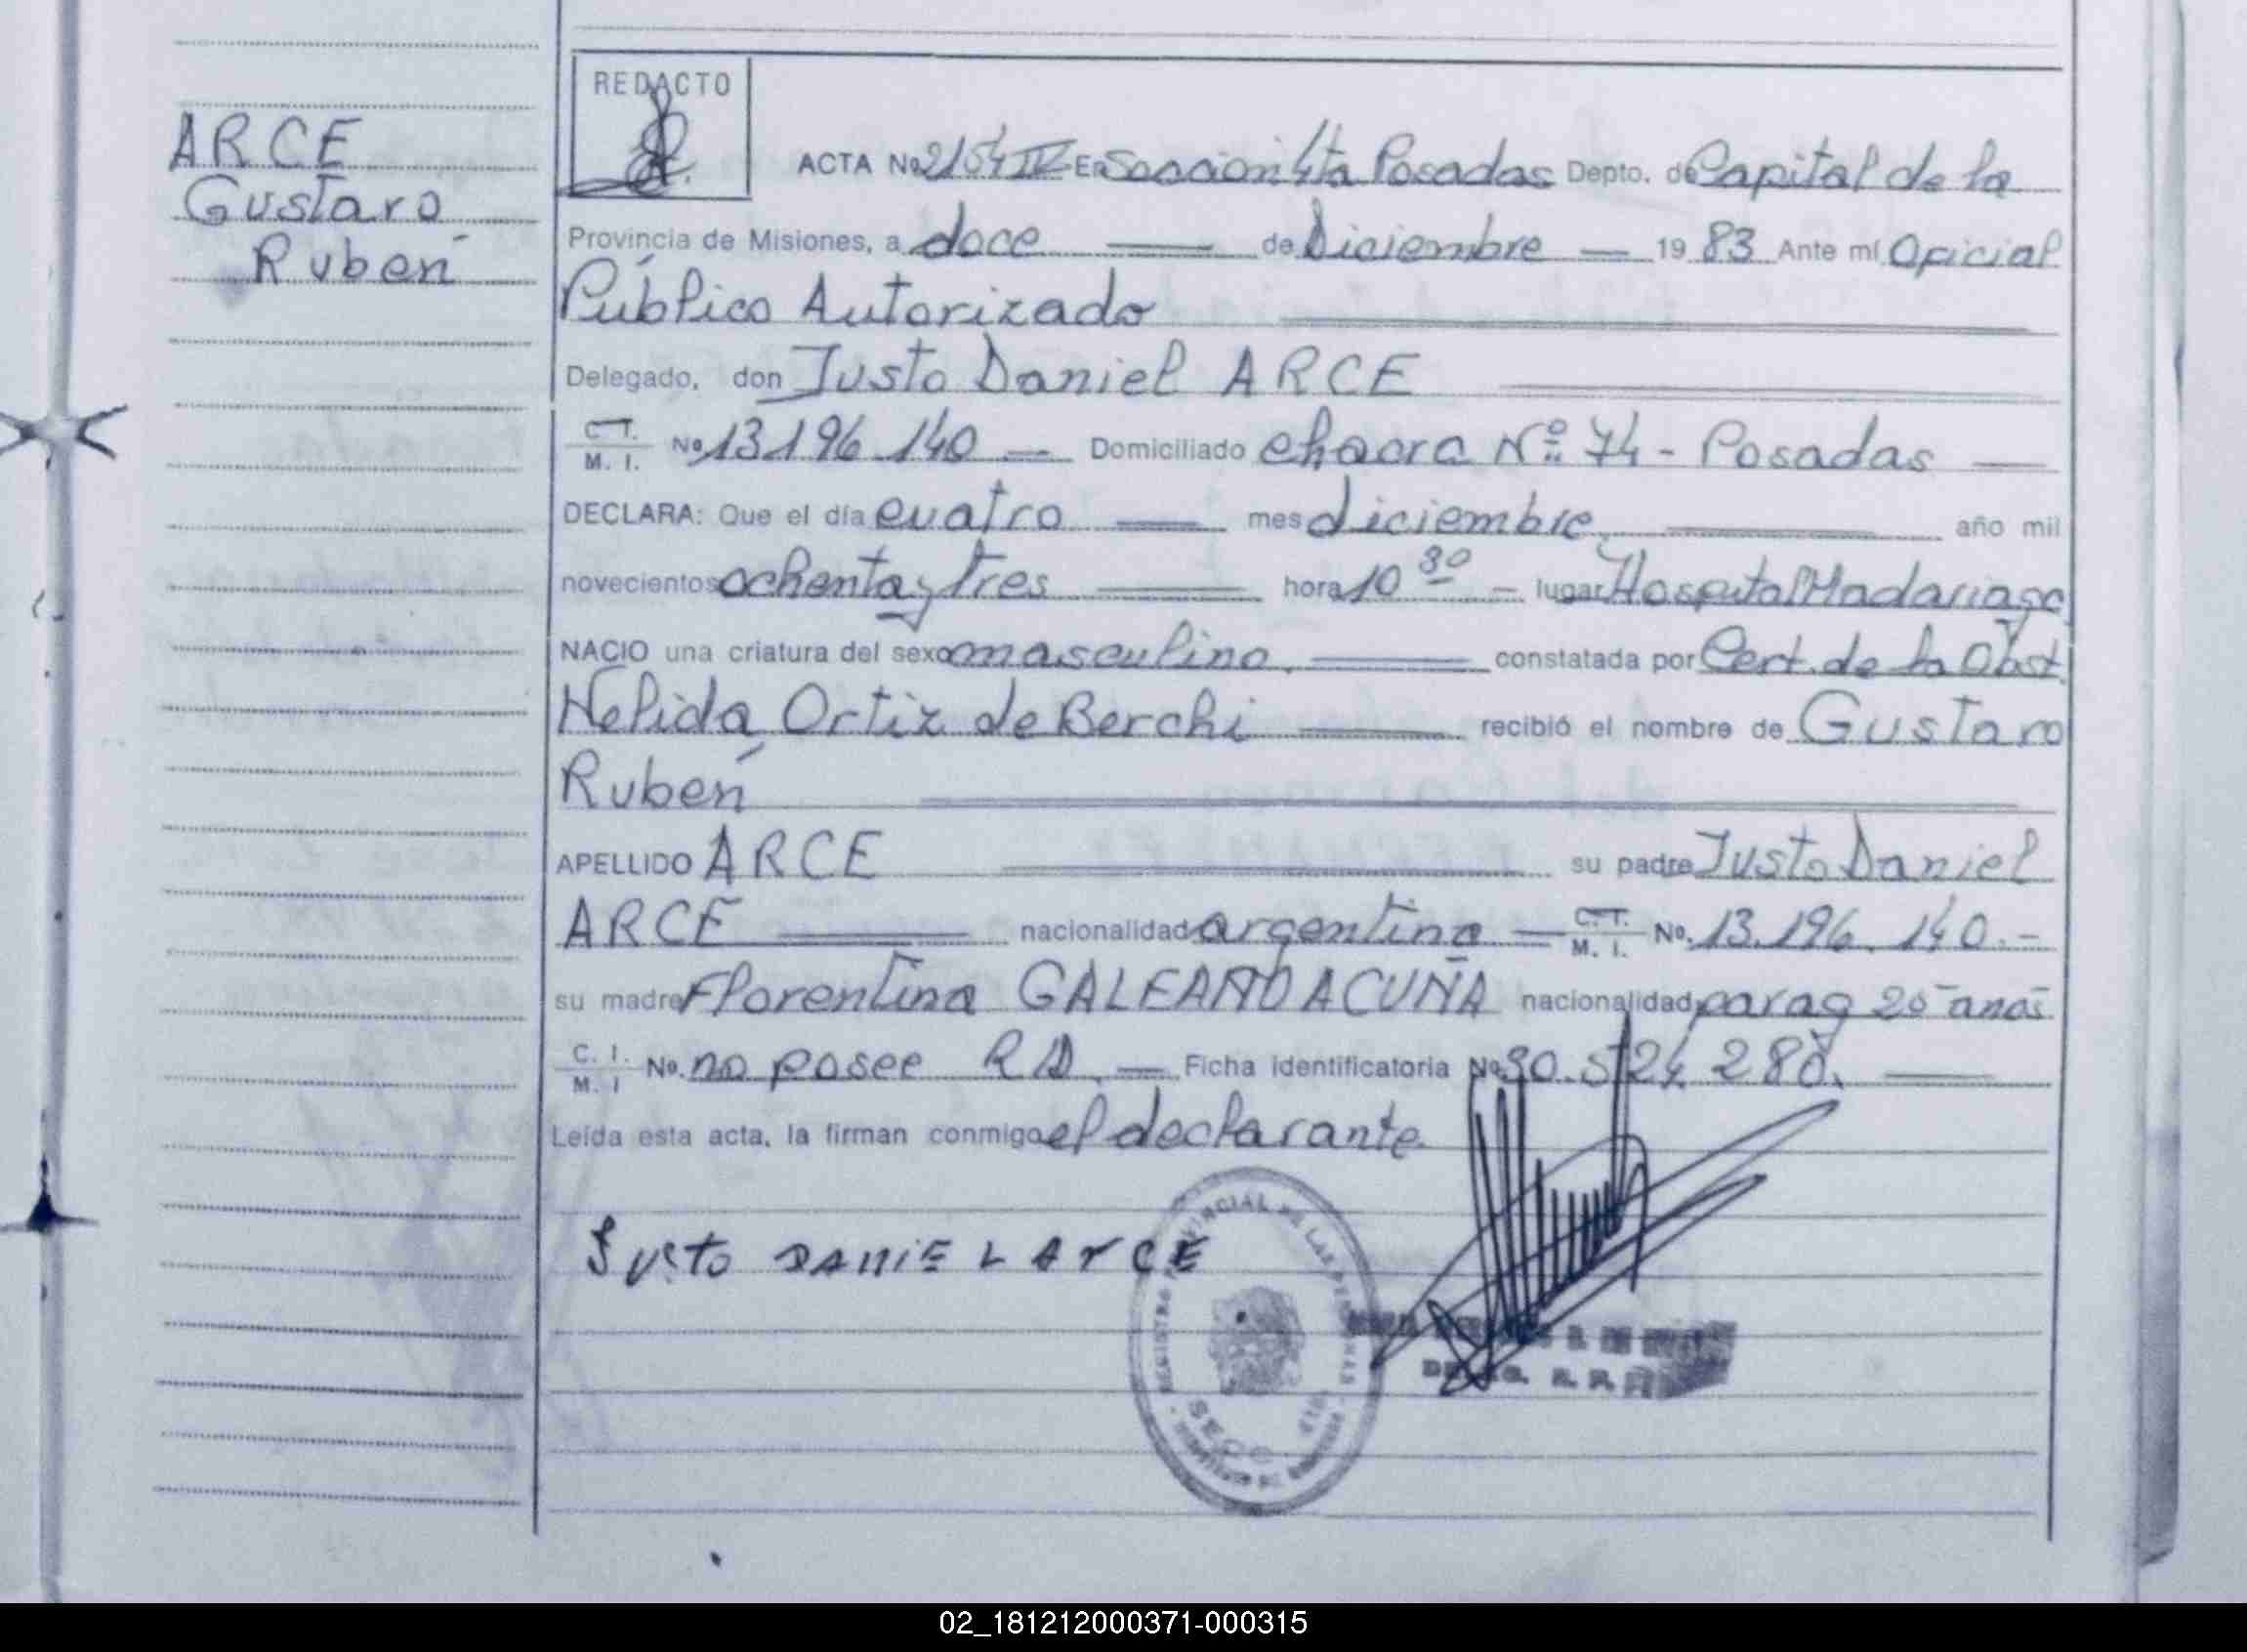 ARCE
Gustavo
Rubén
REDACTO
ACTA No 2154 IV En Sección 4ta Posadas Depto. de Capital de la
Provincia de Misiones, a doce de Diciembre 19 83 Ante mí Oficial
Público Autorizado
Delegado, don Justo Daniel ARCE
C. I.
M. I. No 13.196.140 Domiciliado chacra Nº 74 - Posadas
DECLARA: Que el día cuatro mes diciembre, año mil
novecientos ochenta y tres hora 10 30 lugar Hospital Madariaga
NACIO una criatura del sexo masculino. constatada por Cert. de la Obst.
Nélida Ortiz de Berchi recibió el nombre de Gustavo
Rubén
APELLIDO ARCE su padre Justo Daniel
ARCE nacionalidad argentina C. I.
M. I. No. 13.196.140.-
su madre Florentina GALEANO ACUÑA nacionalidad parag 20 años
C. I.
M. I No. no posee RD. Ficha identificatoria No 30.524.280.
Leída esta acta, la firman conmigo el declarante.
Justo DANIEL ArCE
REGISTRO PROVINCIAL DE LAS PERSONAS
02_181212000371-000315